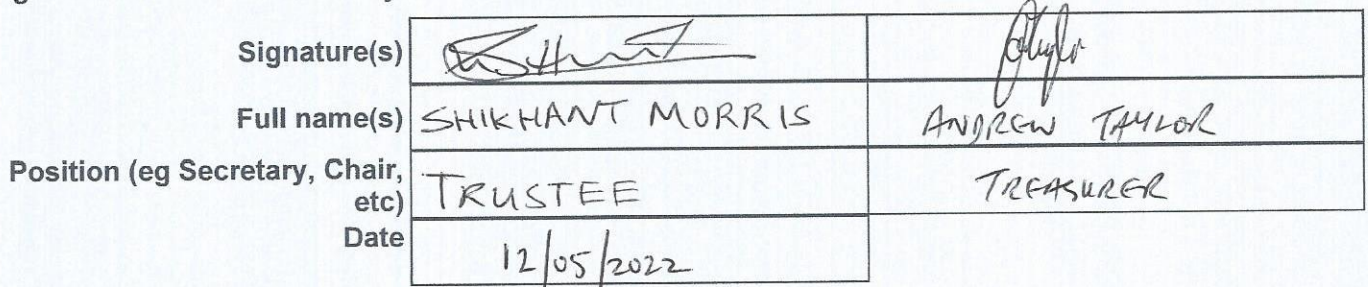 Signature(s)
Full name(s) SHIKHANT MORRIS ANDREW TAYLOR
Position (eg Secretary, Chair, etc) TRUSTEE TREASURER
Date 12/05/2022